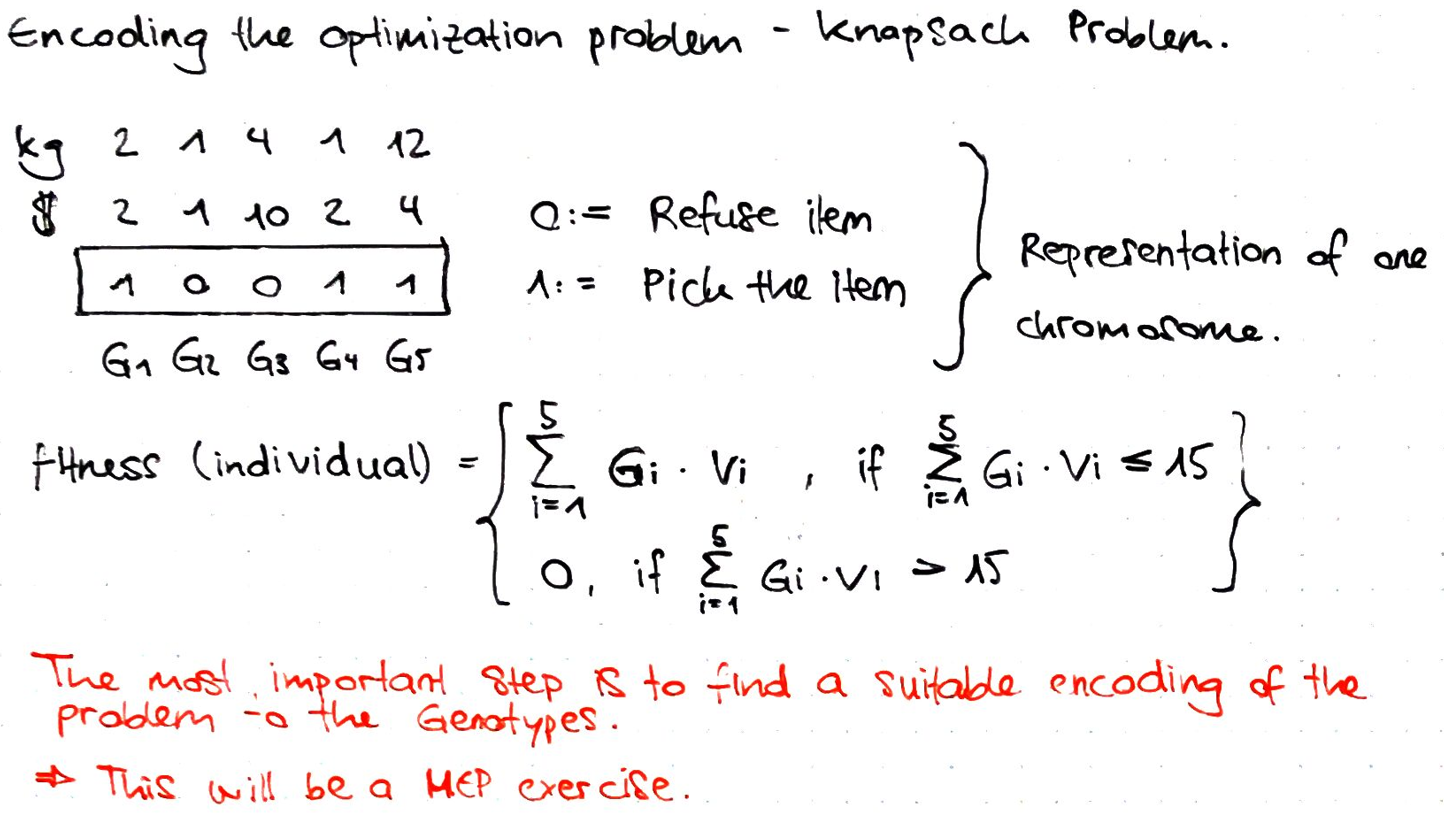 Encoding the optimization problem - Knapsach Problem.
kg 2 1 4 1 12
$ 2 1 10 2 4 0:= Refuse item
1 0 0 1 1 1:= Pick the item
G1 G2 G3 G4 G5
Representation of one
chromosome.
fitness (individual) = { ∑_{i=1}^{5} Gi · Vi , if ∑_{i=1}^{5} Gi · Vi ≤ 15
0, if ∑_{i=1}^{5} Gi · Vi > 15 }
The most important step is to find a suitable encoding of the
problem to the Genotypes.
⇒ This will be a MEP exercise.